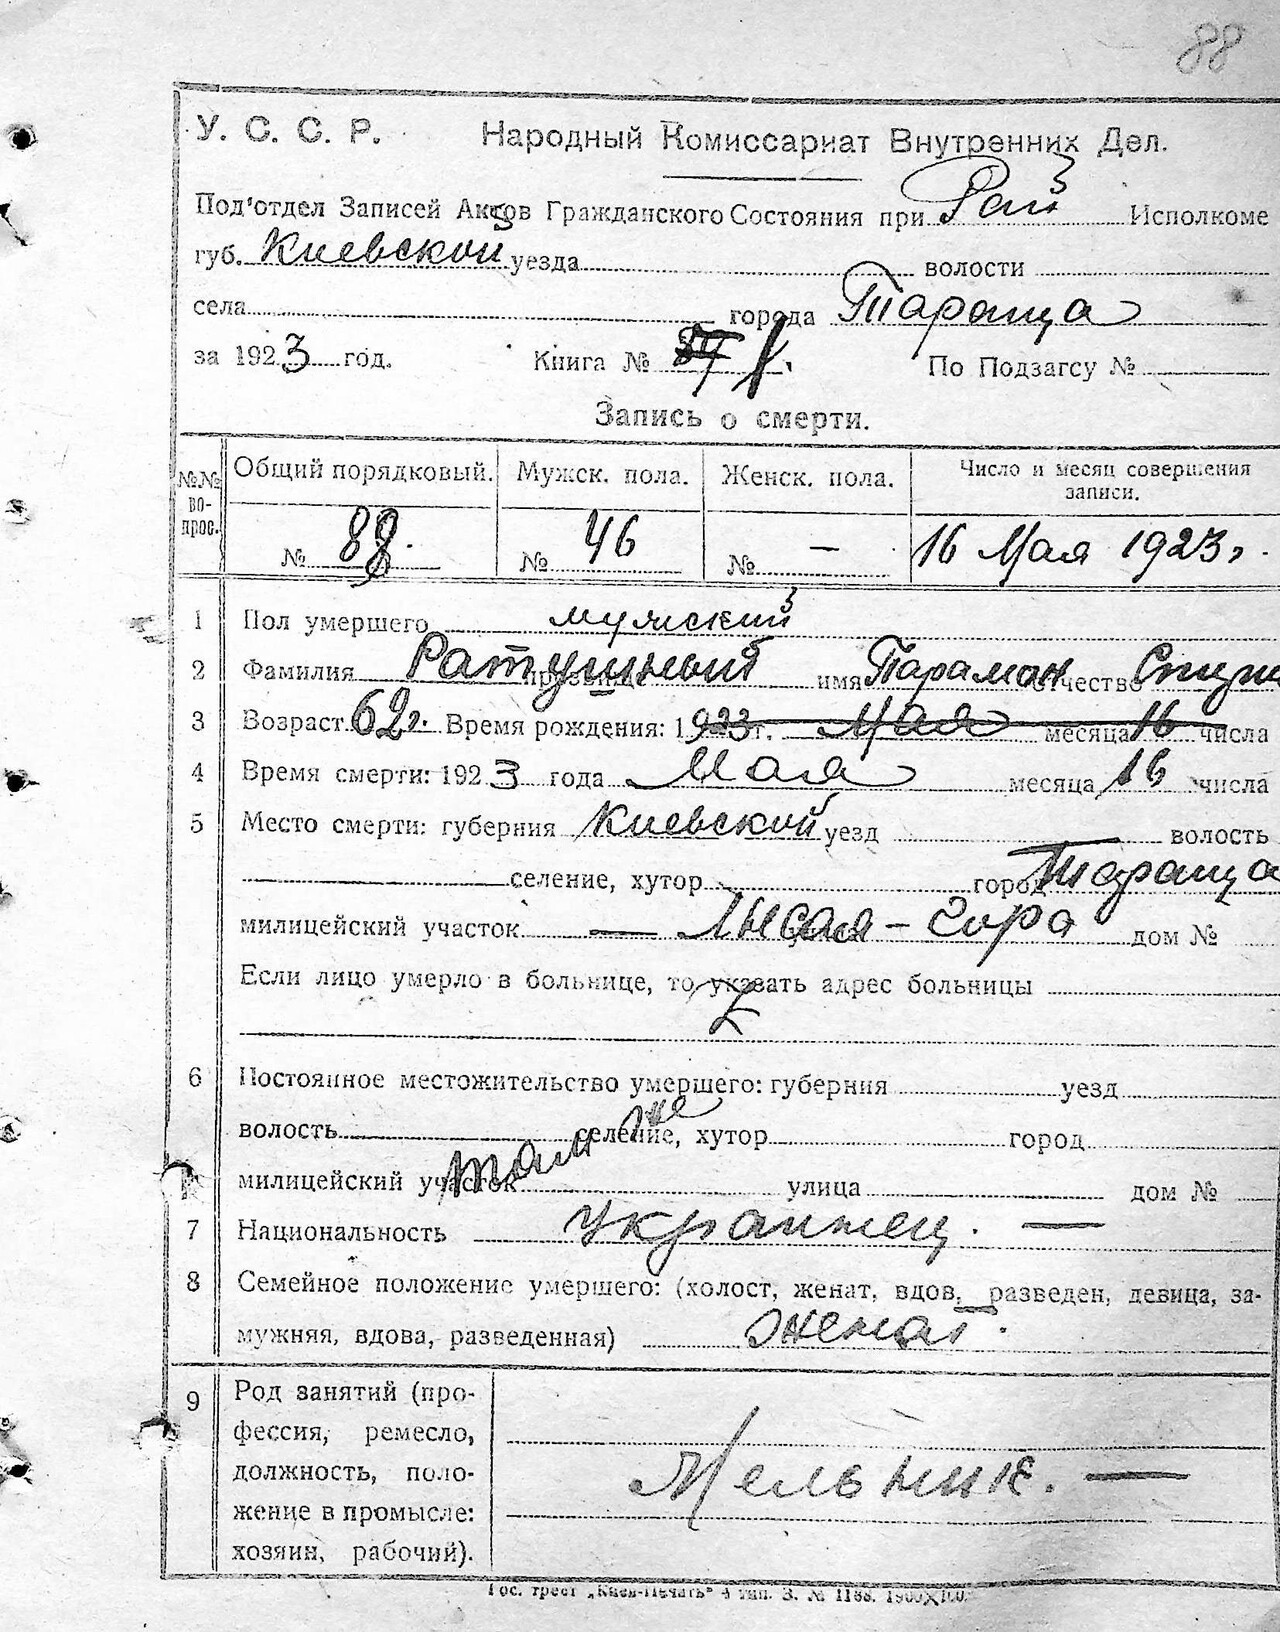 88
У. С. С. Р. Народный Комиссариат Внутренних Дел.
Под'отдел Записей Актов Гражданского Состояния при Рай Исполкоме
губ. Киевской уезда волости
села города Тараща
за 1923 год. Книга № 1. По Подзагсу №
Запись о смерти.
№№ вопрос. Общий порядковый. Мужск. пола. Женск. пола. Число и месяц совершения записи.
№ 88. № 46 № — 16 Мая 1923 г.
1 Пол умершего мужский
2 Фамилия Ратушный имя Парамон отчество
3 Возраст 62 г. Время рождения: 1923 г. Мая месяца 16 числа
4 Время смерти: 1923 года Мая месяца 16 числа
5 Место смерти: губерния Киевской уезд волость
селение, хутор город Тараща
милицейский участок — Лысая – гора дом №
Если лицо умерло в больнице, то указать адрес больницы
6 Постоянное местожительство умершего: губерния уезд
волость селение, хутор город
там же
милицейский участок улица дом №
7 Национальность украинец. —
8 Семейное положение умершего: (холост, женат, вдов, разведен, девица, за-
мужняя, вдова, разведенная) женат.
9 Род занятий (про-
фессия, ремесло,
должность, поло-
жение в промысле:
хозяин, рабочий).
Мельник. —
Гос. трест „Киев-Печать“ 4 тип. З. № 1188.